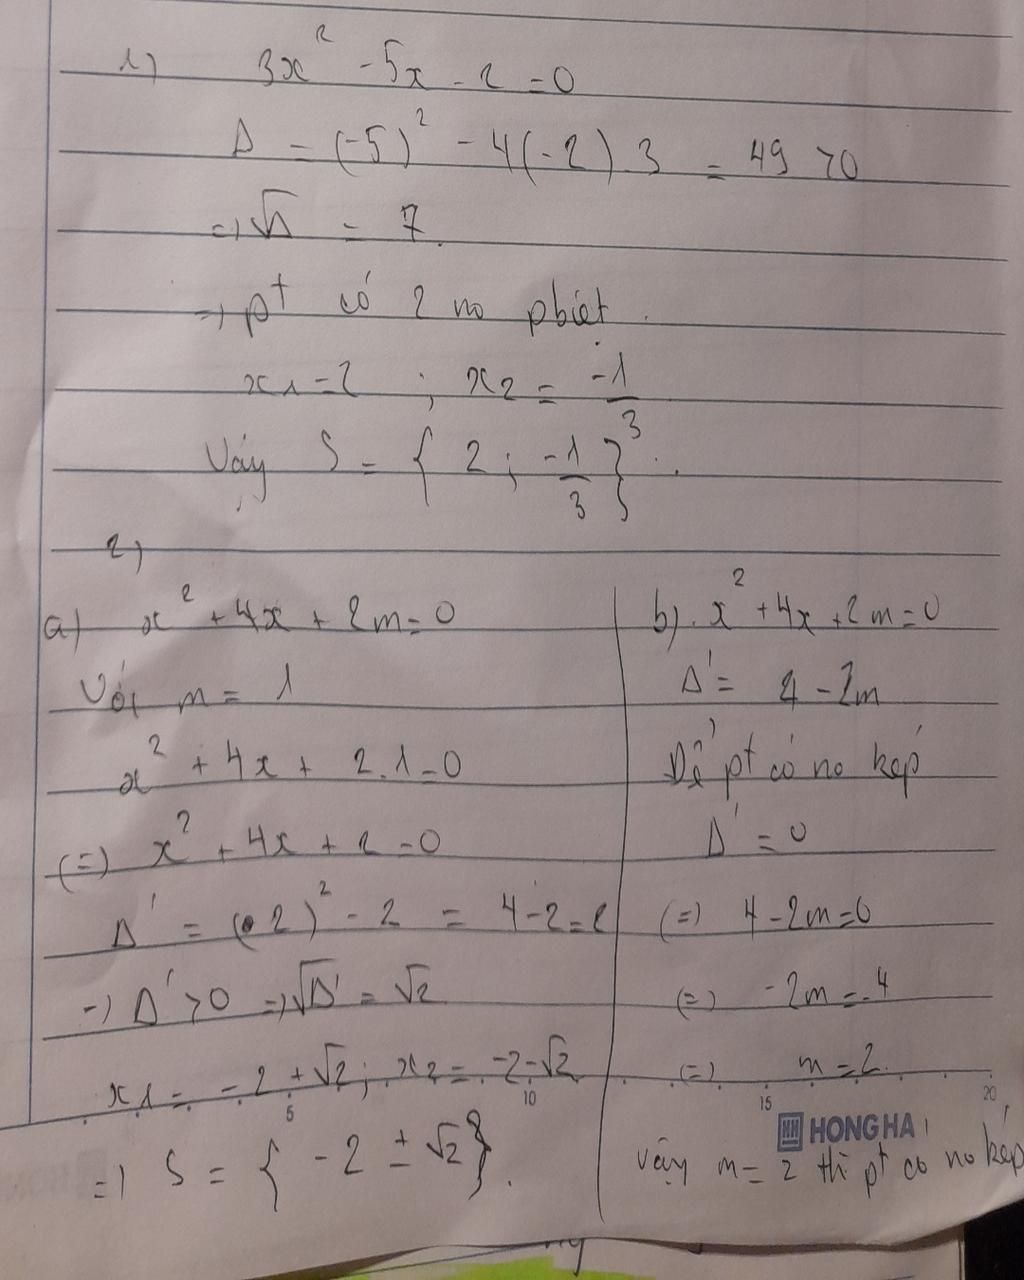 1) 3x² - 5x - 2 = 0
Δ = (-5)² - 4(-2) 3 = 49 > 0
=> √Δ = 7.
=> pt có 2 no pbiệt.
x1 = 2 ; x2 = -1/3
Vậy S = { 2 ; -1/3 }.
2)
a) x² + 4x + 2m = 0
Với m = 1
x² + 4x + 2.1 = 0
(=) x² + 4x + 2 = 0
Δ' = (2)² - 2 = 4 - 2 = 2
=> Δ' > 0 => √Δ' = √2
x1 = -2 + √2 ; x2 = -2 - √2
=> S = { -2 ± √2 }.
b). x² + 4x + 2m = 0
Δ' = 4 - 2m
Để pt có no kép
Δ' = 0
(=) 4 - 2m = 0
(=) -2m = -4
(=) m = 2.
5 10 15 20
HONG HA
Vậy m = 2 thì pt có no kép